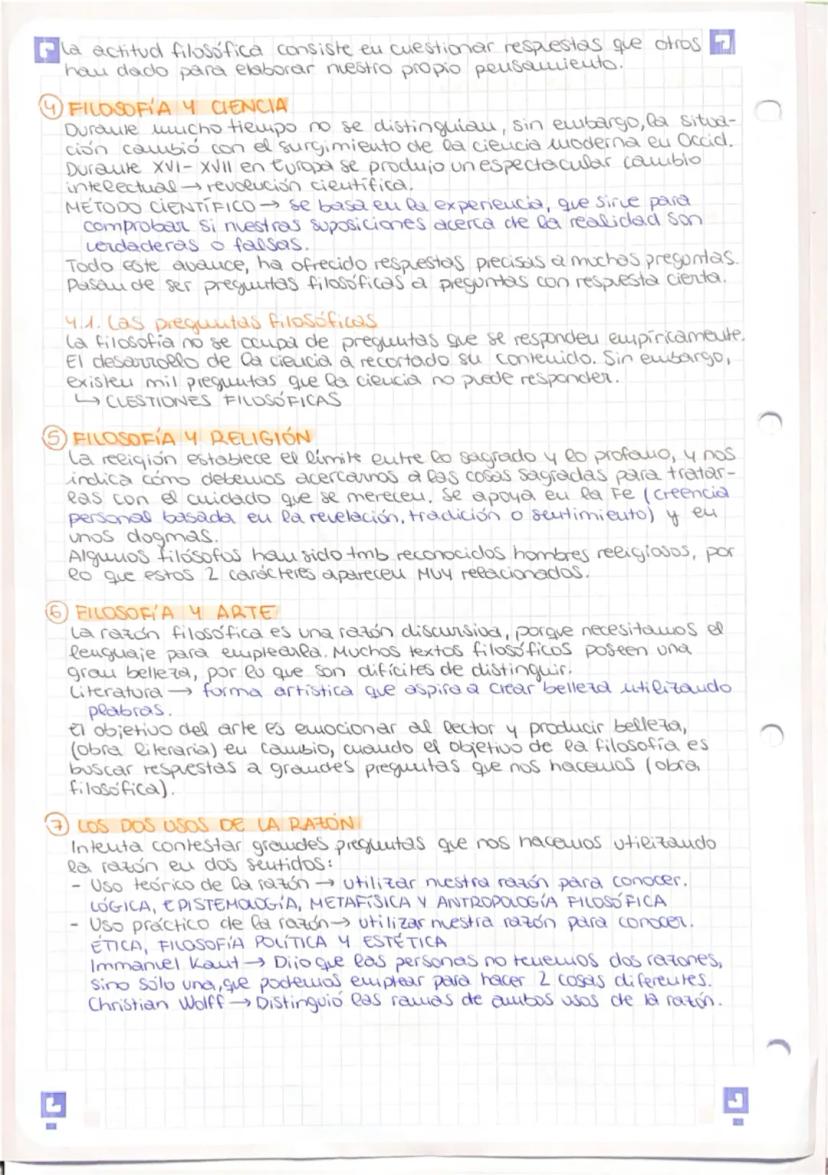 La actitud filosófica consiste en cuestionar respuestas que otros
han dado para elaborar nuestro propio pensamiento.
4 FILOSOFÍA Y CIENCIA
Durante mucho tiempo no se distinguían, sin embargo, la situa-
ción cambió con el surgimiento de la ciencia moderna en Occid.
Durante XVI-XVII en Europa se produjo un espectacular cambio
intelectual → revolución científica.
MÉTODO CIENTÍFICO → se basa en la experiencia, que sirve para
comprobar si nuestras suposiciones acerca de la realidad son
verdaderas o falsas.
Todo este avance, ha ofrecido respuestas precisas a muchas preguntas.
Pasan de ser preguntas filosóficas a preguntas con respuesta cierta.
4.1. Las preguntas filosóficas
La filosofía no se ocupa de preguntas que se responden empíricamente.
El desarrollo de la ciencia a recortado su contenido. Sin embargo,
existen mil preguntas que la ciencia no puede responder.
↳ CUESTIONES FILOSÓFICAS
5 FILOSOFÍA Y RELIGIÓN
La religión establece el límite entre lo sagrado y lo profano, y nos
indica cómo debemos acercarnos a las cosas sagradas para tratar-
las con el cuidado que se merecen. Se apoya en la Fe (creencia
personal basada en la revelación, tradición o sentimiento) y en
unos dogmas.
Algunos filósofos han sido tmb reconocidos hombres religiosos, por
lo que estos 2 carácteres aparecen MUY relacionados.
6 FILOSOFÍA Y ARTE
La razón filosófica es una razón discursiva, porque necesitamos el
lenguaje para emplearla. Muchos textos filosóficos poseen una
gran belleza, por lo que son difíciles de distinguir.
Literatura → forma artística que aspira a crear belleza utilizando
plabras.
El objetivo del arte es emocionar al lector y producir belleza,
(obra literaria) en cambio, cuando el objetivo de la filosofía es
buscar respuestas a grandes preguntas que nos hacemos (obra
filosófica).
7 LOS DOS USOS DE LA RAZÓN
Intenta contestar grandes preguntas que nos hacemos utilizando
la razón en dos sentidos:
- Uso teórico de la razón → utilizar nuestra razón para conocer.
LÓGICA, EPISTEMOLOGÍA, METAFÍSICA Y ANTROPOLOGÍA FILOSÓFICA
- Uso práctico de la razón → utilizar nuestra razón para conocer.
ÉTICA, FILOSOFÍA POLÍTICA Y ESTÉTICA
Immanuel Kant → Dijo que las personas no tenemos dos razones,
sino sólo una, que podemos emplear para hacer 2 cosas diferentes.
Christian Wolff → Distinguió las ramas de ambos usos de la razón.